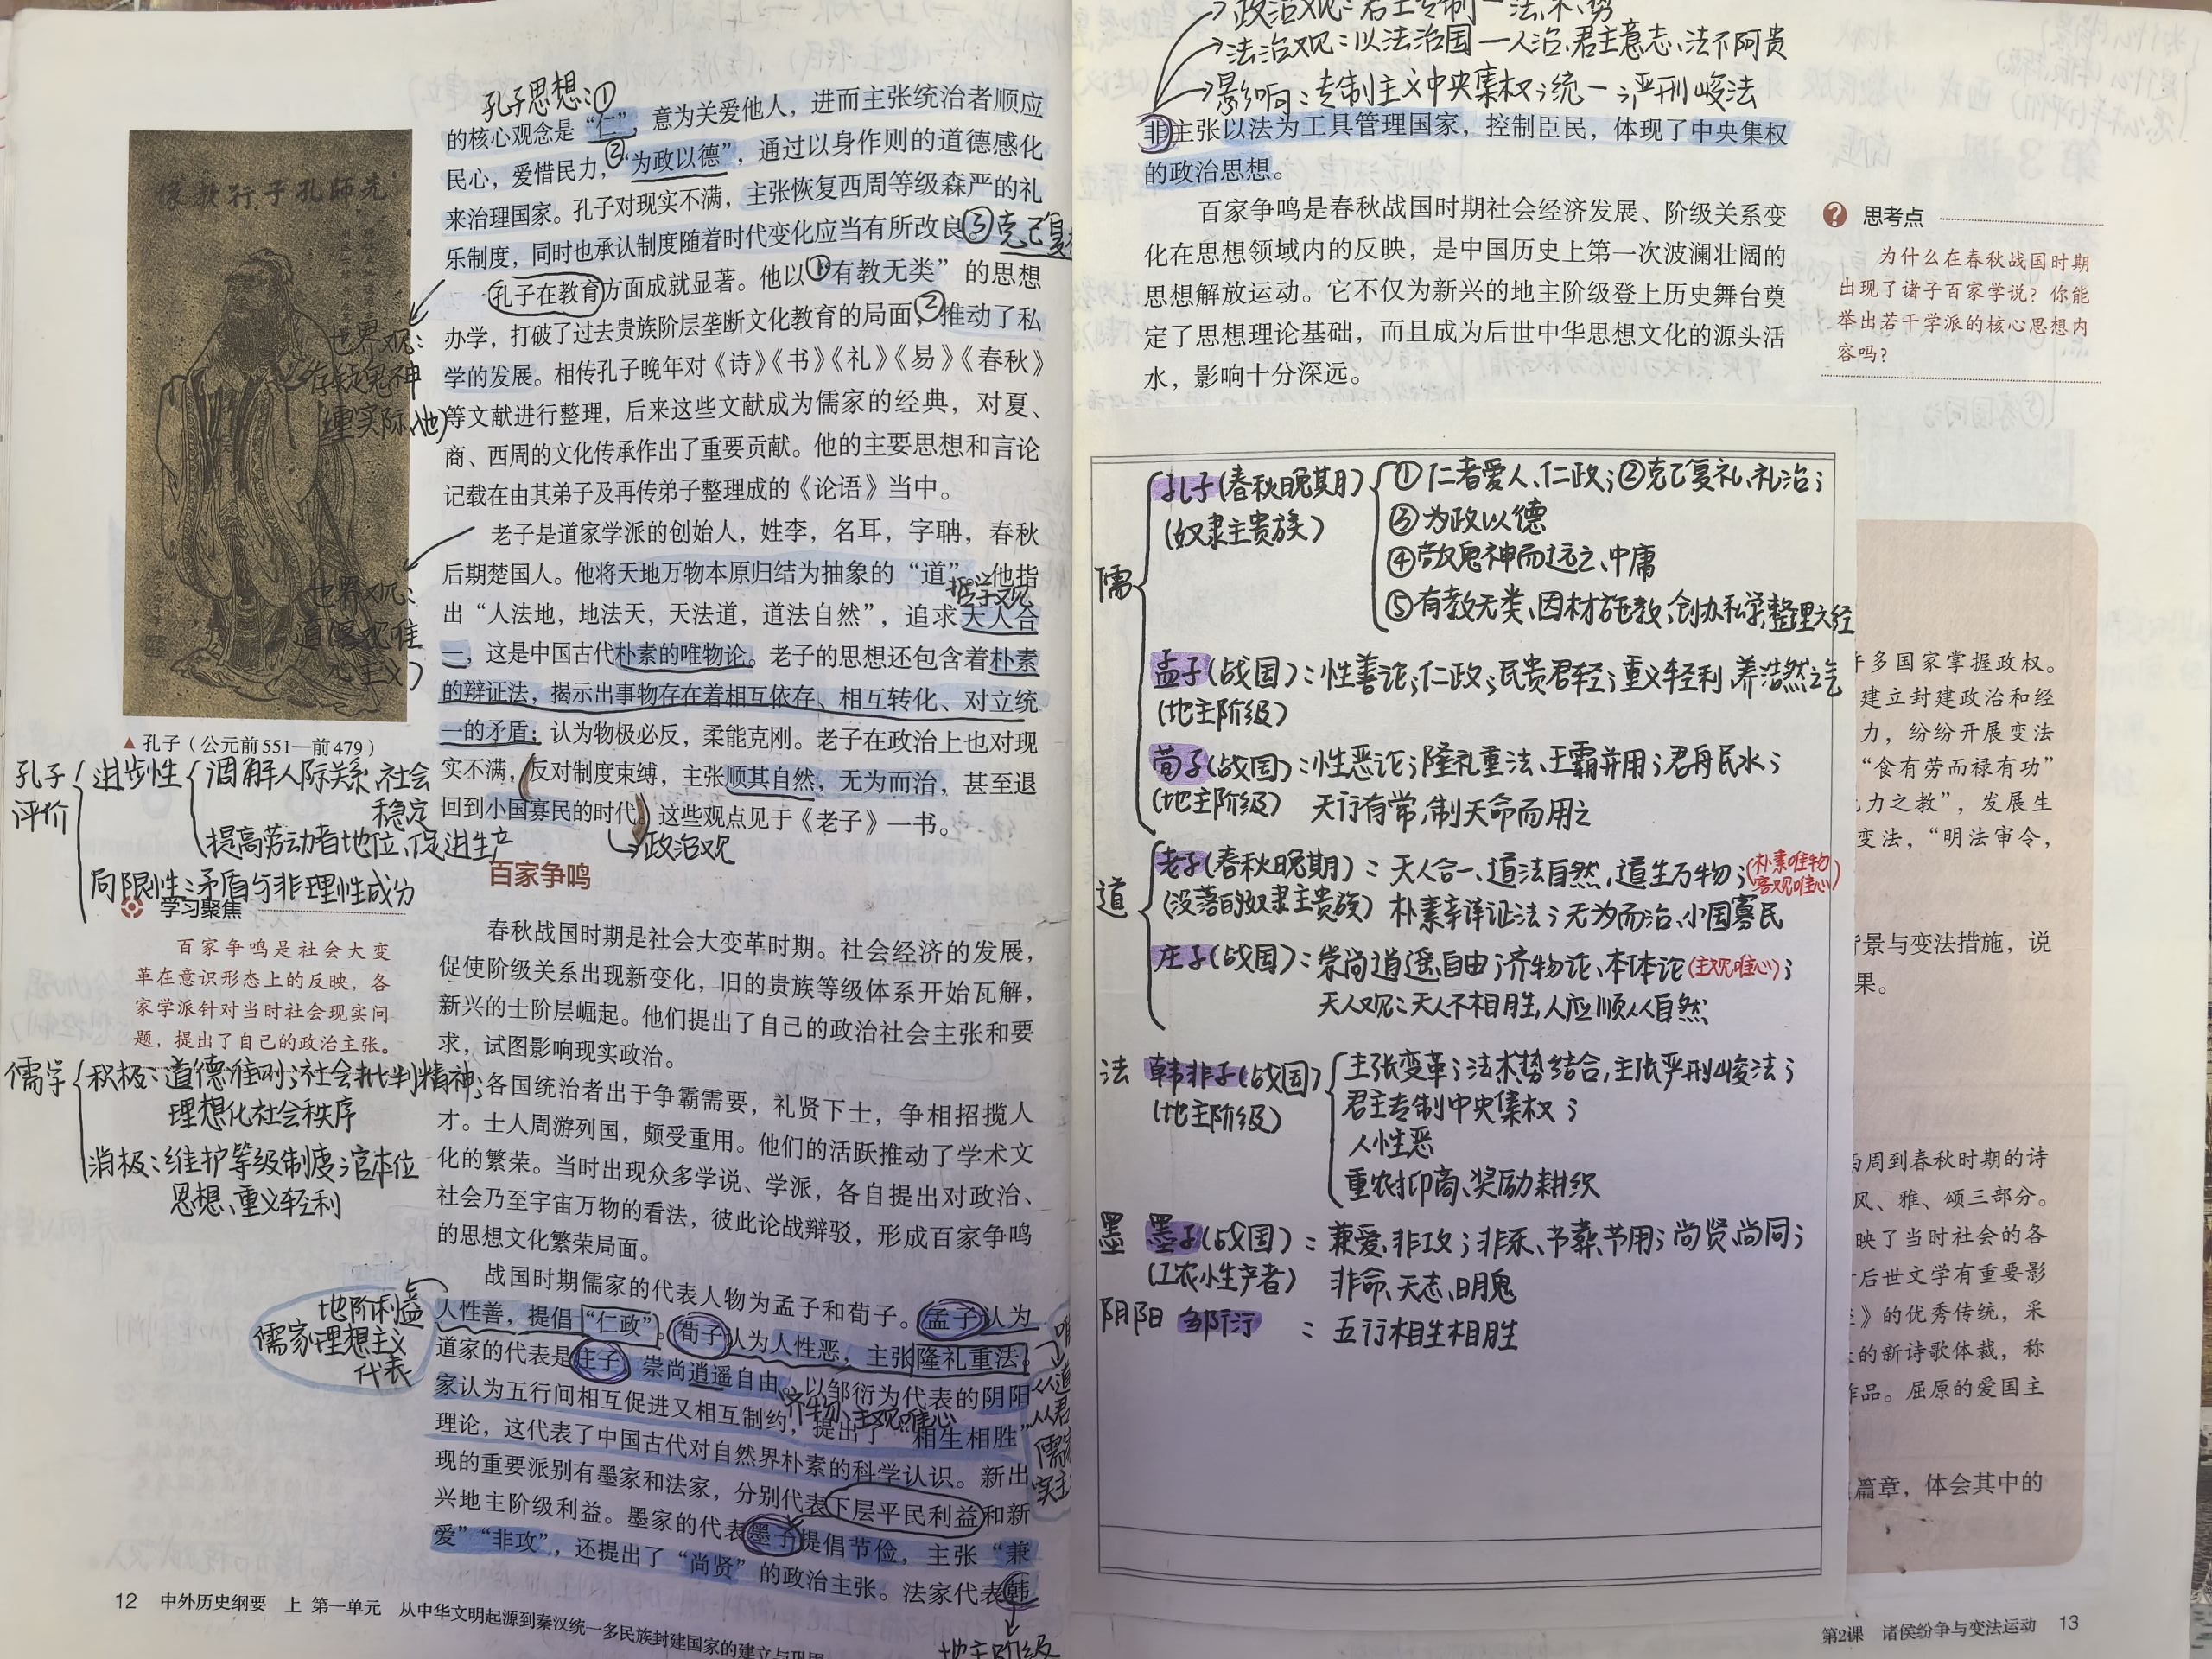 先師孔子行教像
▲ 孔子（公元前551—前479）
孔子思想：①
的核心观念是“仁”，意为关爱他人，进而主张统治者顺应
民心，爱惜民力，②“为政以德”，通过以身作则的道德感化
来治理国家。孔子对现实不满，主张恢复西周等级森严的礼
乐制度，同时也承认制度随着时代变化应当有所改良③克己复
孔子在教育方面成就显著。他以①“有教无类”的思想
办学，打破了过去贵族阶层垄断文化教育的局面，②推动了私
学的发展。相传孔子晚年对《诗》《书》《礼》《易》《春秋》
等文献进行整理，后来这些文献成为儒家的经典，对夏、
商、西周的文化传承作出了重要贡献。他的主要思想和言论
记载在由其弟子及再传弟子整理成的《论语》当中。
世界观：
存疑鬼神
重实际
老子是道家学派的创始人，姓李，名耳，字聃，春秋
后期楚国人。他将天地万物本原归结为抽象的“道”。他指
哲学观
出“人法地，地法天，天法道，道法自然”，追求天人合
一，这是中国古代朴素的唯物论。老子的思想还包含着朴素
的辩证法，揭示出事物存在着相互依存、相互转化、对立统
一的矛盾；认为物极必反，柔能克刚。老子在政治上也对现
实不满，反对制度束缚，主张顺其自然，无为而治，甚至退
回到小国寡民的时代。这些观点见于《老子》一书。
政治观
世界观：
道（客观唯
心主义）
孔子评价
进步性
调解人际关系、社会
稳定
提高劳动者地位、促进生产
局限性：矛盾与非理性成分
百家争鸣
学习聚焦
百家争鸣是社会大变
革在意识形态上的反映，各
家学派针对当时社会现实问
题，提出了自己的政治主张。
儒学
积极：道德准则；社会批判精神；
理想化社会秩序
消极：维护等级制度；官本位
思想、重义轻利
春秋战国时期是社会大变革时期。社会经济的发展，
促使阶级关系出现新变化，旧的贵族等级体系开始瓦解，
新兴的士阶层崛起。他们提出了自己的政治社会主张和要
求，试图影响现实政治。
各国统治者出于争霸需要，礼贤下士，争相招揽人
才。士人周游列国，颇受重用。他们的活跃推动了学术文
化的繁荣。当时出现众多学说、学派，各自提出对政治、
社会乃至宇宙万物的看法，彼此论战辩驳，形成百家争鸣
的思想文化繁荣局面。
战国时期儒家的代表人物为孟子和荀子。孟子认为
人性善，提倡“仁政”。荀子认为人性恶，主张隆礼重法。
道家的代表是庄子，崇尚逍遥自由。以邹衍为代表的阴阳
家认为五行间相互促进又相互制约，提出了“相生相胜”
齐物、主观唯心
理论，这代表了中国古代对自然界朴素的科学认识。新出
现的重要派别有墨家和法家，分别代表下层平民利益和新
兴地主阶级利益。墨家的代表墨子提倡节俭，主张“兼
爱”“非攻”，还提出了“尚贤”的政治主张。法家代表韩
地主阶级
地阶利益
儒家理想主义
代表
12 中外历史纲要 上 第一单元 从中华文明起源到秦汉统一多民族封建国家的建立与巩固
政治观：君主专制—法、术、势
法治观：以法治国—人治、君主意志、法不阿贵
影响：专制主义中央集权；统一；严刑峻法
非主张以法为工具管理国家，控制臣民，体现了中央集权
的政治思想。
百家争鸣是春秋战国时期社会经济发展、阶级关系变
化在思想领域内的反映，是中国历史上第一次波澜壮阔的
思想解放运动。它不仅为新兴的地主阶级登上历史舞台奠
定了思想理论基础，而且成为后世中华思想文化的源头活
水，影响十分深远。
思考点
为什么在春秋战国时期
出现了诸子百家学说？你能
举出若干学派的核心思想内
容吗？
儒
孔子（春秋晚期）
（奴隶主贵族）
①仁者爱人、仁政；②克己复礼、礼治；
③为政以德
④敬鬼神而远之、中庸
⑤有教无类、因材施教；创办私学，整理六经
孟子（战国）：性善论；仁政；民贵君轻；重义轻利、养浩然之气
（地主阶级）
荀子（战国）：性恶论；隆礼重法、王霸并用；君舟民水；
（地主阶级） 天行有常，制天命而用之
道
老子（春秋晚期）：天人合一、道法自然，道生万物；（朴素唯物 客观唯心）
（没落的奴隶主贵族） 朴素辩证法；无为而治、小国寡民
庄子（战国）：崇尚逍遥、自由；齐物论、本体论（主观唯心）；
天人观：天人不相胜，人应顺从自然
法 韩非子（战国）
（地主阶级）
主张变革；法术势结合，主张严刑峻法；
君主专制中央集权；
人性恶
重农抑商、奖励耕织
墨 墨子（战国）：兼爱、非攻；非乐、节葬、节用；尚贤、尚同；
（工农小生产者） 非命、天志、明鬼
阴阳 邹衍：五行相生相胜
多国家掌握政权。
建立封建政治和经
力，纷纷开展变法
“食有劳而禄有功”
力之教”，发展生
变法，“明法审令，
背景与变法措施，说
果。
西周到春秋时期的诗
风、雅、颂三部分。
映了当时社会的各
后世文学有重要影
》的优秀传统，采
的新诗歌体裁，称
作品。屈原的爱国主
篇章，体会其中的
第2课 诸侯纷争与变法运动 13